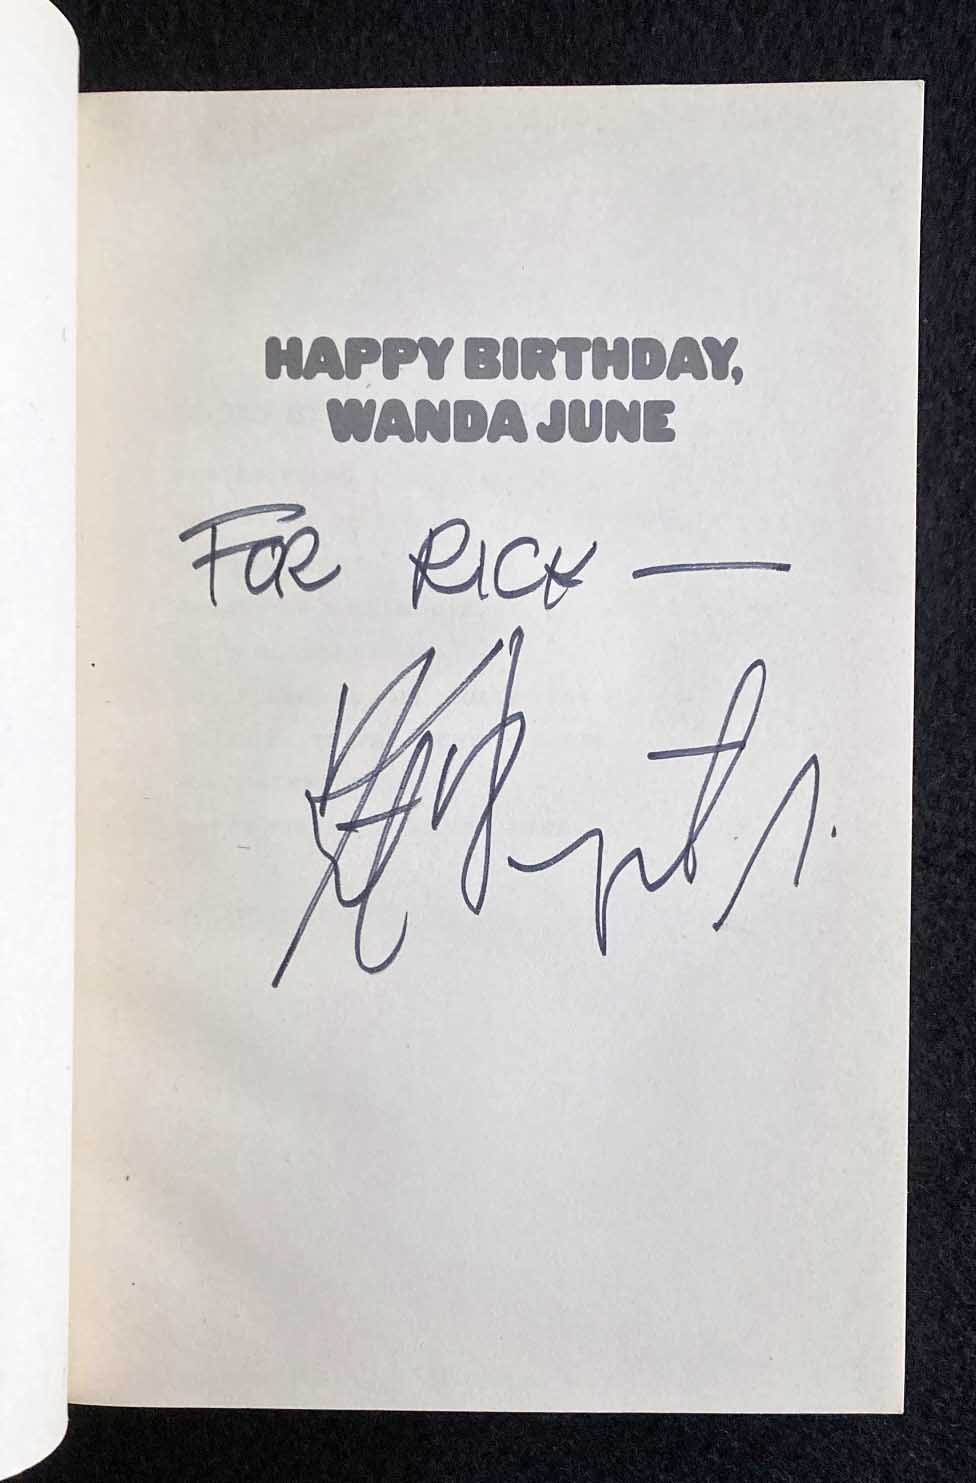 HAPPY BIRTHDAY,
WANDA JUNE
FOR RICK —